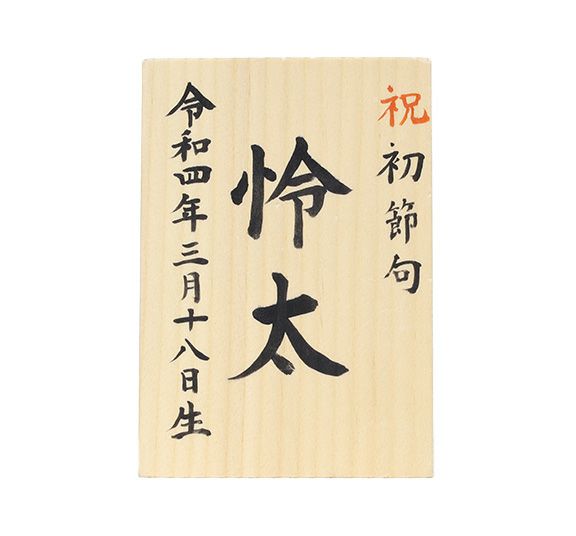 祝初節句
怜太
令和四年三月十八日生